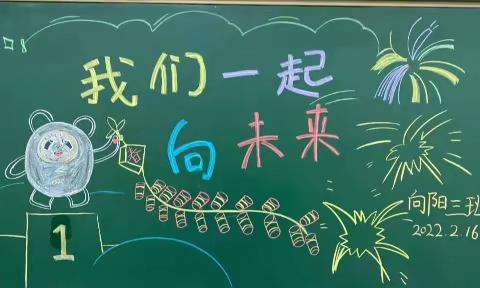 我们一起
向未来
1
向阳三班
2022.2.16